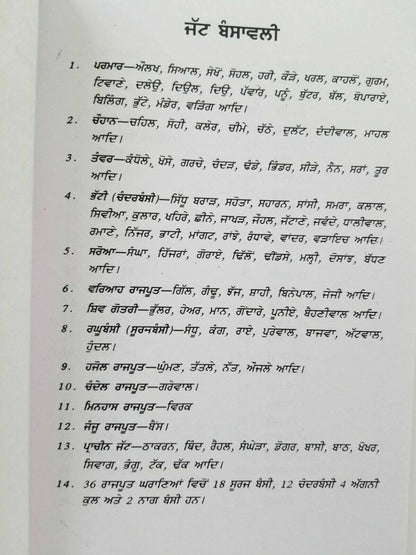 ਜੱਟ ਬੰਸਾਵਲੀ
1. ਪਰਮਾਰ—ਔਲਖ, ਸਿਆਲ, ਸੇਖੋਂ, ਸੋਹਲ, ਹਰੀ, ਕੌੜੇ, ਖਰਲ, ਕਾਹਲੋਂ, ਗੁਰਮ,
ਟਿਵਾਣੇ, ਦਲੇਉ, ਦਿਉਲ, ਦਿਉ, ਪੱਵਾਰ, ਪਨੂੰ, ਬੁੱਟਰ, ਬੱਲ, ਬੋਪਾਰਾਏ,
ਬਿਲਿੰਗ, ਭੁੱਟੇ, ਮੰਡੇਰ, ਵੜਿੰਗ ਆਦਿ।
2. ਚੌਹਾਨ—ਚਹਿਲ, ਸੋਹੀ, ਕਲੇਰ, ਚੀਮੇ, ਚੱਠੇ, ਦੁਲੱਟ, ਦੰਦੀਵਾਲ, ਮਾਹਲ
ਆਦਿ।
3. ਤੰਵਰ—ਕੰਧੋਲੇ, ਖੋਸੇ, ਗਰਚੇ, ਚੰਦੜ, ਢੰਡੇ, ਭਿੰਡਰ, ਸੀੜੇ, ਨੈਨ, ਸਰਾਂ, ਤੂਰ
ਆਦਿ।
4. ਭੱਟੀ (ਚੰਦਰਬੰਸੀ)—ਸਿੱਧੂ ਬਰਾੜ, ਸਹੋਤਾ, ਸਹਾਰਨ, ਸਾਂਸੀ, ਸਮਰਾ, ਕਲਾਲ,
ਸਿਵੀਆ, ਕੁਲਾਰ, ਖਹਿਰੇ, ਛੀਨੇ, ਜਾਖੜ, ਜੌਹਲ, ਜੱਟਾਣੇ, ਜਵੰਦੇ, ਧਾਲੀਵਾਲ,
ਰਮਾਣੇ, ਨਿੱਜਰ, ਭਾਟੀ, ਮਾਂਗਟ, ਰਾਂਝੇ, ਰੰਧਾਵੇ, ਵਾਂਦਰ, ਵੜਾਇਚ ਆਦਿ।
5. ਸਰੋਆ—ਸੰਘਾ, ਹਿੰਜਰਾਂ, ਗੋਰਾਏ, ਢਿੱਲੋਂ, ਢੀਂਡਸੇ, ਮਲ੍ਹੀ, ਦੋਸਾਂਝ, ਬੱਧਣ
ਆਦਿ।
6. ਵਰਿਆਹ ਰਾਜਪੂਤ—ਗਿੱਲ, ਗੰਢੂ, ਝੱਜ, ਸ਼ਾਹੀ, ਬਿਨੇਪਾਲ, ਜੇਜੀ ਆਦਿ।
7. ਸ਼ਿਵ ਗੋਤਰੀ—ਭੁੱਲਰ, ਹੇਅਰ, ਮਾਨ, ਗੋਂਦਾਰੇ, ਪੂਨੀਏ, ਬੈਹਣੀਵਾਲ ਆਦਿ।
8. ਰਘੂਬੰਸੀ (ਸੂਰਜਬੰਸੀ)—ਸੰਧੂ, ਕੰਗ, ਰਾਏ, ਪੁਰੇਵਾਲ, ਬਾਜਵਾ, ਅੱਟਵਾਲ,
ਹੁੰਦਲ।
9. ਹਜੋਲ ਰਾਜਪੂਤ—ਘੁੰਮਣ, ਤੱਤਲੇ, ਨੱਤ, ਔਜਲੇ ਆਦਿ।
10. ਚੰਦੇਲ ਰਾਜਪੂਤ—ਗਰੇਵਾਲ।
11. ਮਿਨਹਾਸ ਰਾਜਪੂਤ—ਵਿਰਕ
12. ਜੰਜੂ ਰਾਜਪੂਤ—ਬੈਂਸ।
13. ਪ੍ਰਾਚੀਨ ਜੱਟ—ਠਾਕਰਨ, ਬਿੰਦ, ਰੈਹਲ, ਸੰਘੇੜਾ, ਡੋਗਰ, ਬਾਸੀ, ਬਾਠ, ਖੋਖਰ,
ਸਿਵਾਗ, ਭੰਗੂ, ਟੱਕ, ਢੱਕ ਆਦਿ।
14. 36 ਰਾਜਪੂਤ ਘਰਾਣਿਆਂ ਵਿਚੋਂ 18 ਸੂਰਜ ਬੰਸੀ, 12 ਚੰਦਰਬੰਸੀ 4 ਅੱਗਨੀ
ਕੁਲ ਅਤੇ 2 ਨਾਗ ਬੰਸੀ ਹਨ।